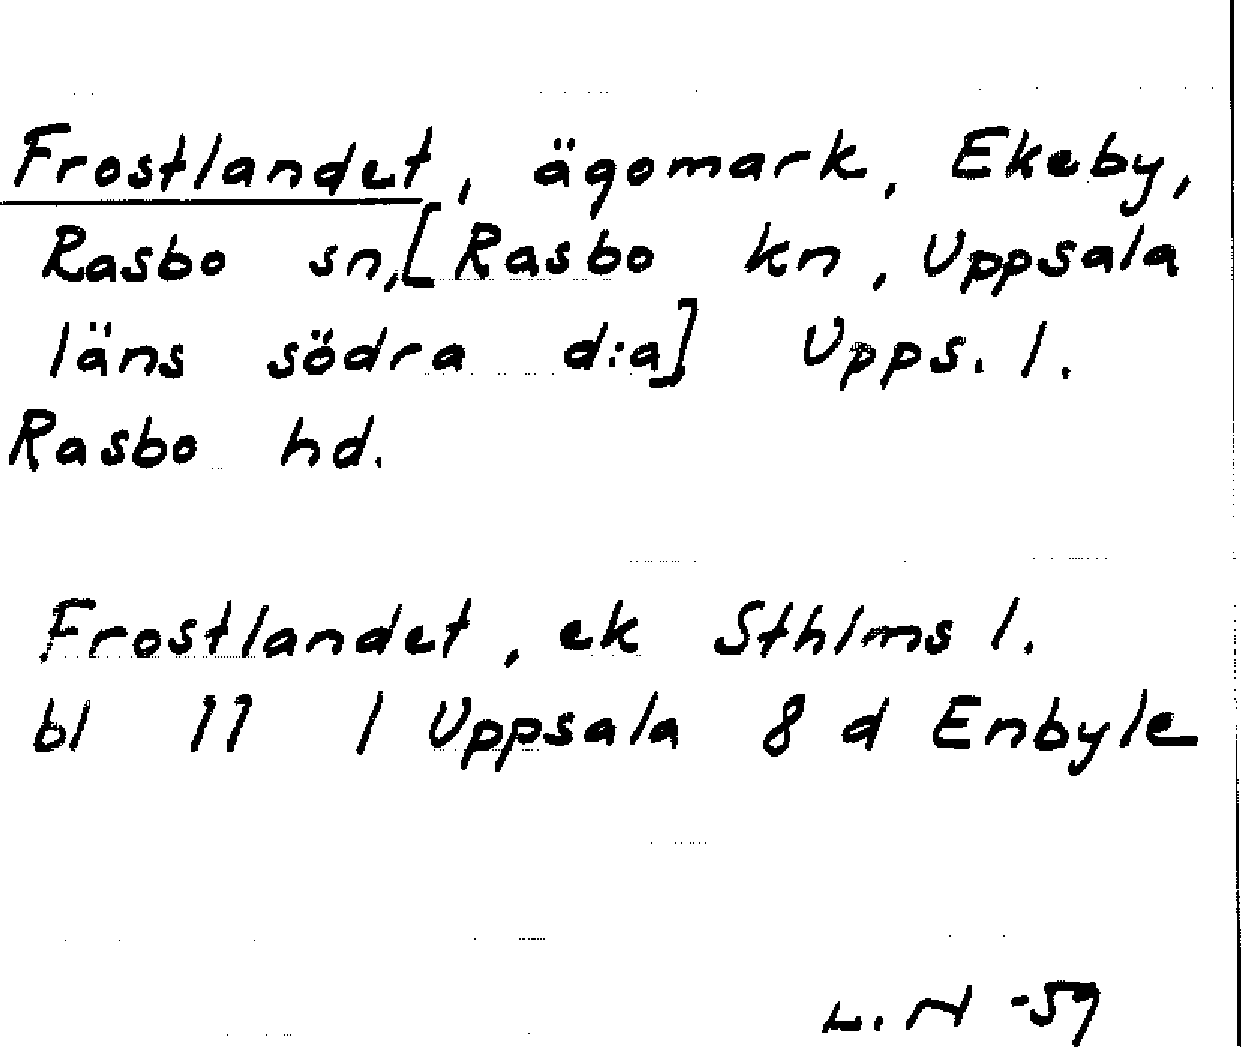 Frostlandet, ägomark, Ekeby,
Rasbo sn, [Rasbo kn, Uppsala
läns södra d:a] Upps. l.
Rasbo hd.
Frostlandet, ek Sthlms l.
bl 77 l Uppsala 8 d Enbyle
L. N -59